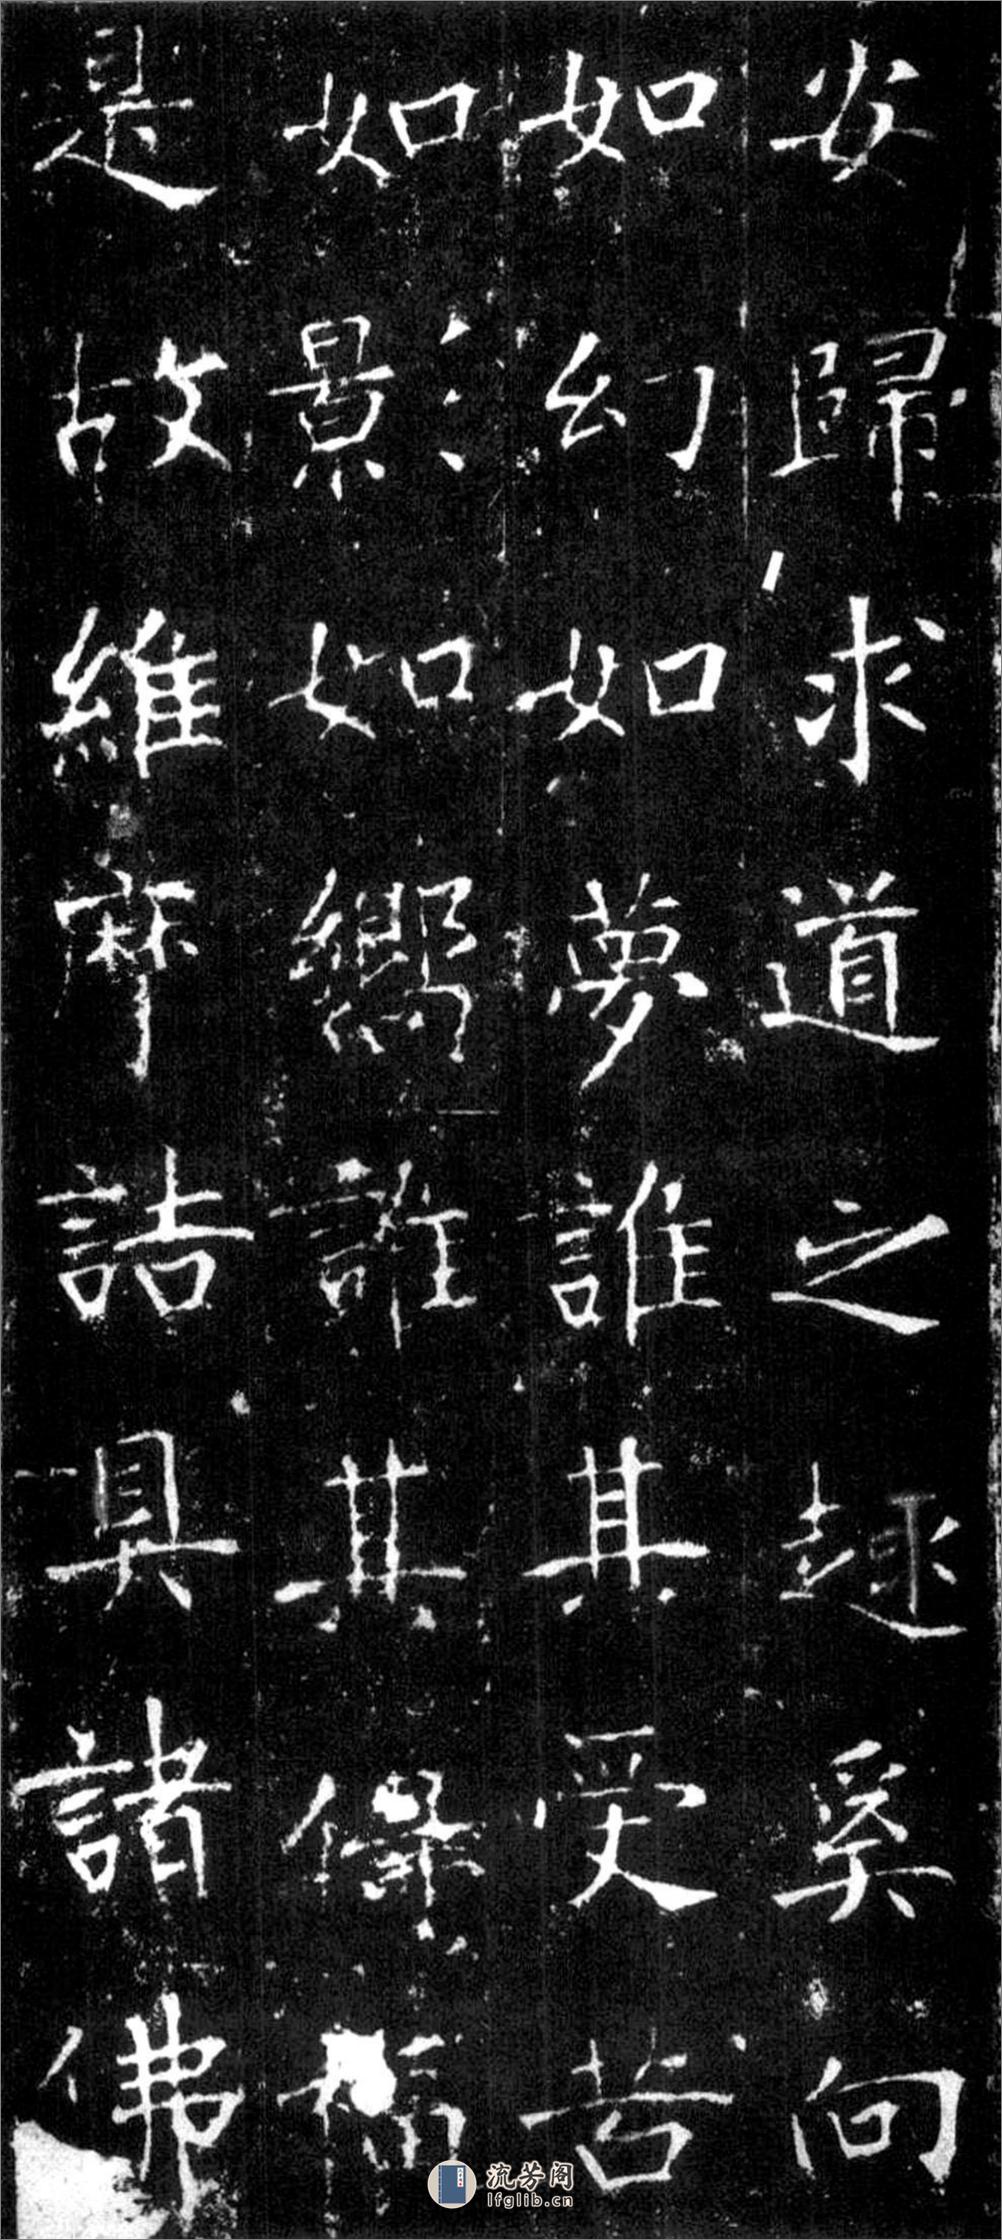 安歸求道之趣奚向
如幻如夢誰其受苦
如影如響誰其保福
是故維摩詰具諸佛
流芳阁
lfglib.cn